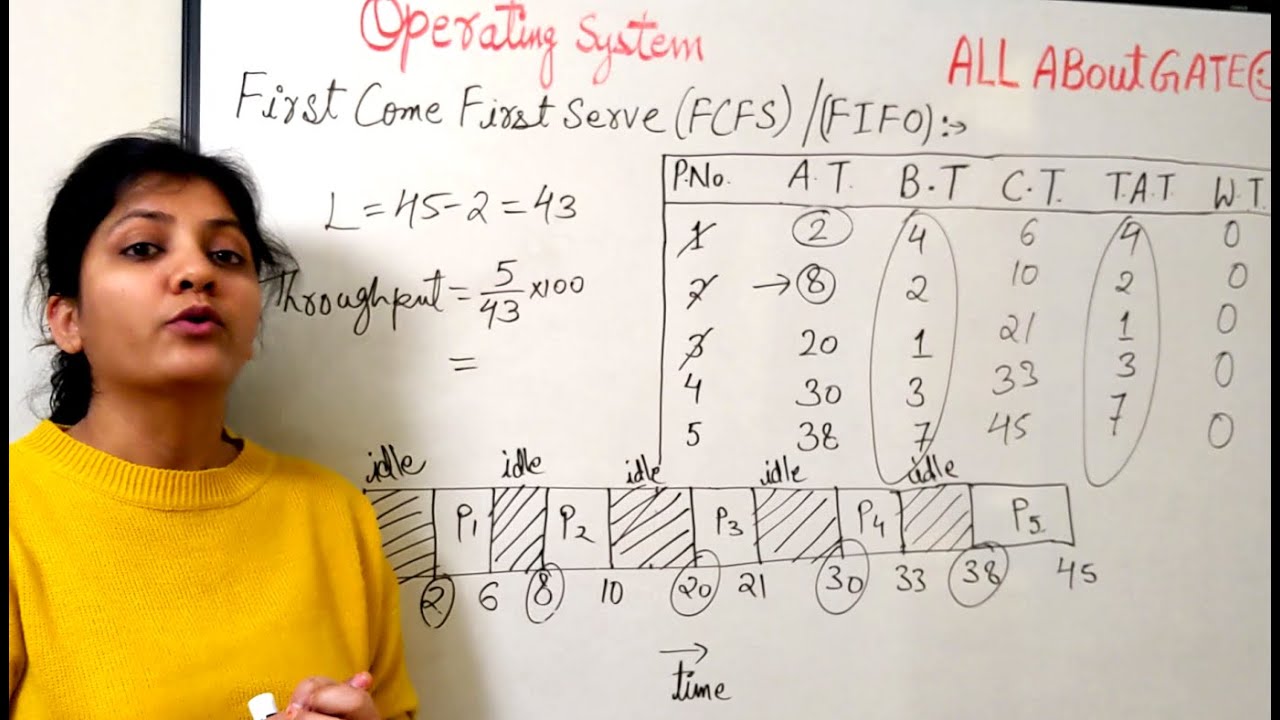 Operating System
ALL ABout GATE
First Come First Serve (FCFS) /(FIFO):->
L = 45-2 = 43
Throughput = 5/43 ×100
=
P.No. A.T. B.T C.T. T.A.T. W.T.
1 2 4 6 4 0
2 →8 2 10 2 0
3 20 1 21 1 0
4 30 3 33 3 0
5 38 7 45 7 0
idle idle idle idle idle
P1 P2 P3 P4 P5
2 6 8 10 20 21 30 33 38 45
→
time